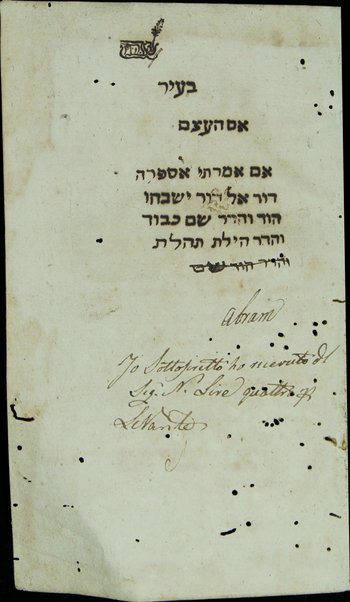 בעיר
אם העצם
אם אמרתי אספרה
דור אל דור ישבחו
הוד והדר שם כבוד
והדר הילת תהלת
והדר הוד שם
Abram
Io Sottoscritto ho ricevuto dl
Sig. N. Lire quattro
Levante